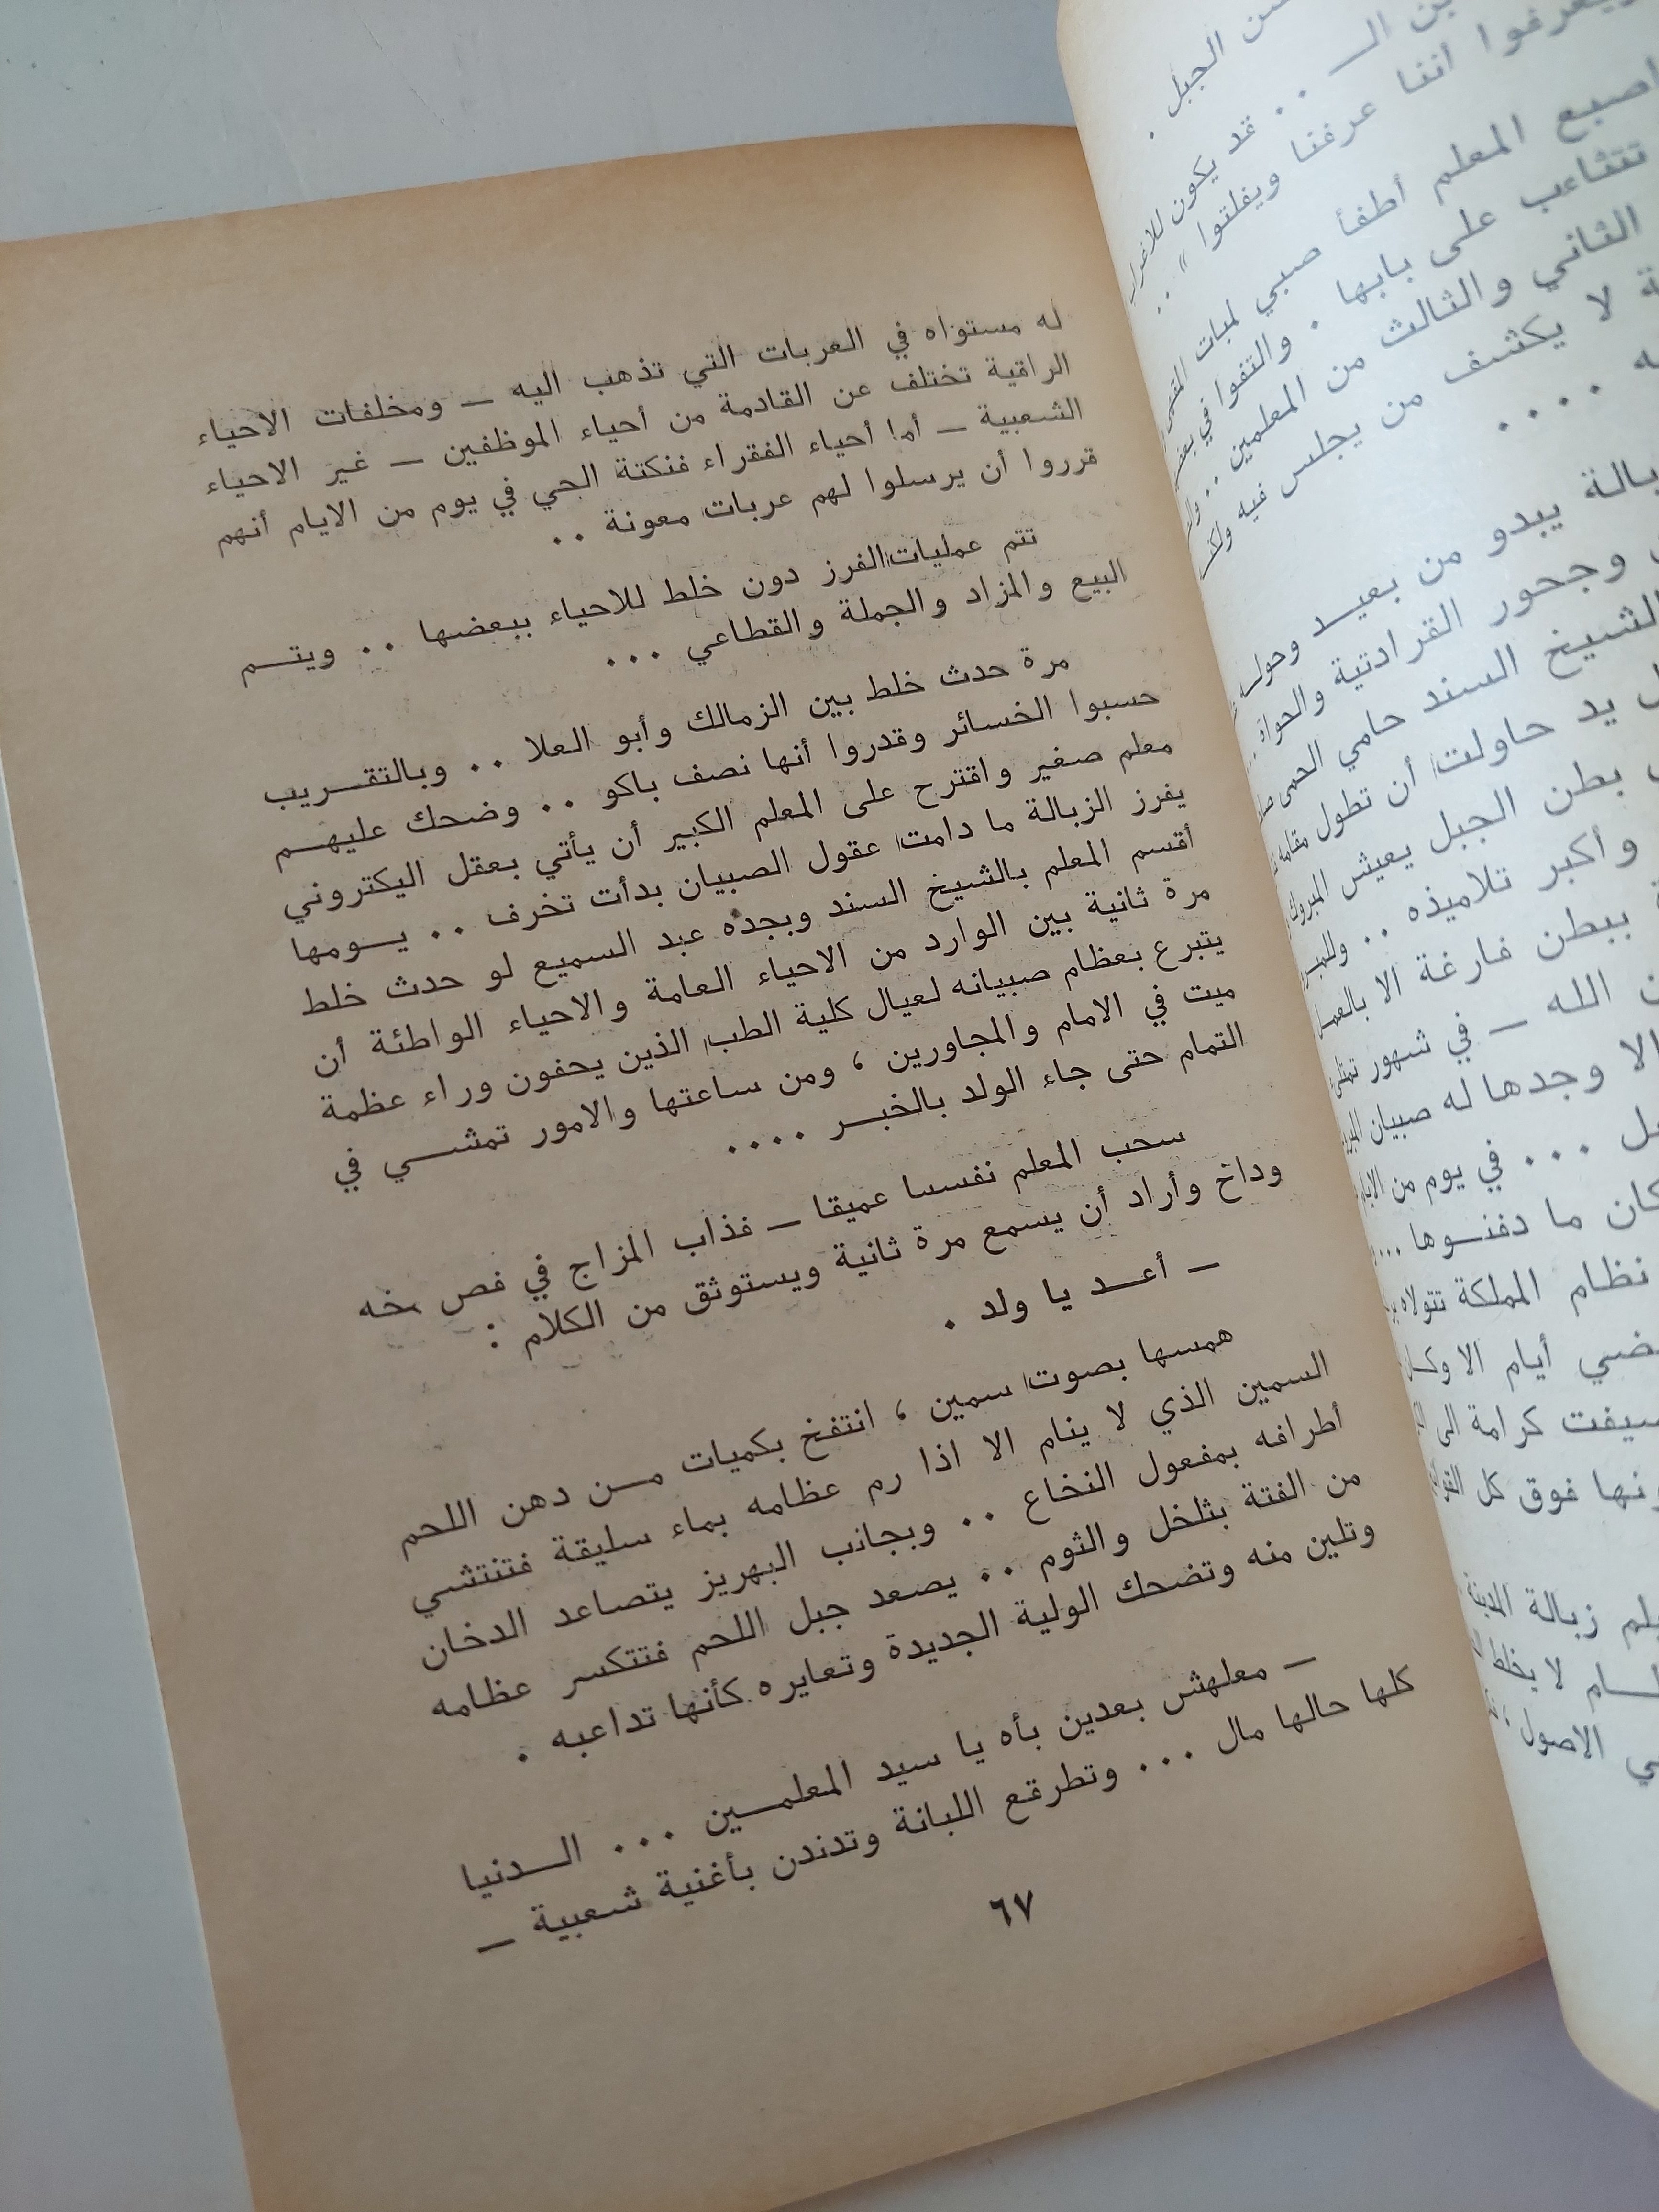 الجبل .
قد يكون ..
أننا عرفنا ويفلتوا » ..
اصبع المعلم أطفأ صبي لمبات
تتثاءب على بابها . والتفوا في
الثاني والثالث من المعلمين ..
لا يكشف من يجلس فيه
....
يبدو من بعيد وحول
وجحور القرادتية والحواة
الشيخ السند حامي الحمى
يد حاولت أن تطول مقامه
بطن الجبل يعيش المبروك
وأكبر تلاميذه ..
ببطن فارغة الا
الله — في شهور
الا وجدها له صبيان
... في يوم من
كان ما دفنوها ...
نظام المملكة تتولاه
أيام الا
كرامة الى
فوق كل
زبالة المدينة
لا يخلط
الاصول
له مستواه في العربات التي تذهب اليه — ومخلفات الاحياء
الراقية تختلف عن القادمة من أحياء الموظفين — غير الاحياء
الشعبية — أما أحياء الفقراء فنكتة الحي في يوم من الايام أنهم
قرروا أن يرسلوا لهم عربات معونة ..
تتم عمليات الفرز دون خلط للاحياء ببعضها .. ويتم
البيع والمزاد والجملة والقطاعي ...
مرة حدث خلط بين الزمالك وأبو العلا .. وبالتقريب
حسبوا الخسائر وقدروا أنها نصف باكو .. وضحك عليهم
معلم صغير واقترح على المعلم الكبير أن يأتي بعقل اليكتروني
يفرز الزبالة ما دامت عقول الصبيان بدأت تخرف .. يومها
أقسم المعلم بالشيخ السند وبجده عبد السميع لو حدث خلط
مرة ثانية بين الوارد من الاحياء العامة والاحياء الواطئة أن
يتبرع بعظام صبيانه لعيال كلية الطب الذين يحفون وراء عظمة
ميت في الامام والمجاورين ، ومن ساعتها والامور تمشي في
التمام حتى جاء الولد بالخبر ....
سحب المعلم نفسا عميقا — فذاب المزاج في فص مخه
وداخ وأراد أن يسمع مرة ثانية ويستوثق من الكلام :
— أعد يا ولد .
همسها بصوت سمين ، انتفخ بكميات من دهن اللحم
السمين الذي لا ينام الا اذا رم عظامه بماء سليقة فتنتشي
أطرافه بمفعول النخاع .. وبجانب البهريز يتصاعد الدخان
من الفتة بثلخل والثوم .. يصعد جبل اللحم فتتكسر عظامه
وتلين منه وتضحك الولية الجديدة وتعايره كأنها تداعبه .
— معلهش بعدين بأه يا سيد المعلمين ... الدنيا
كلها حالها مال ... وتطرقع اللبانة وتدندن بأغنية شعبية —
٦٧